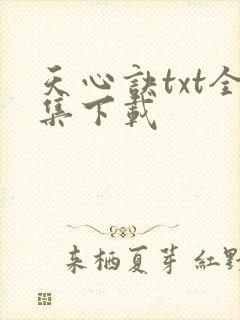 天心诀txt全
集下载
来栖夏芽 紅野